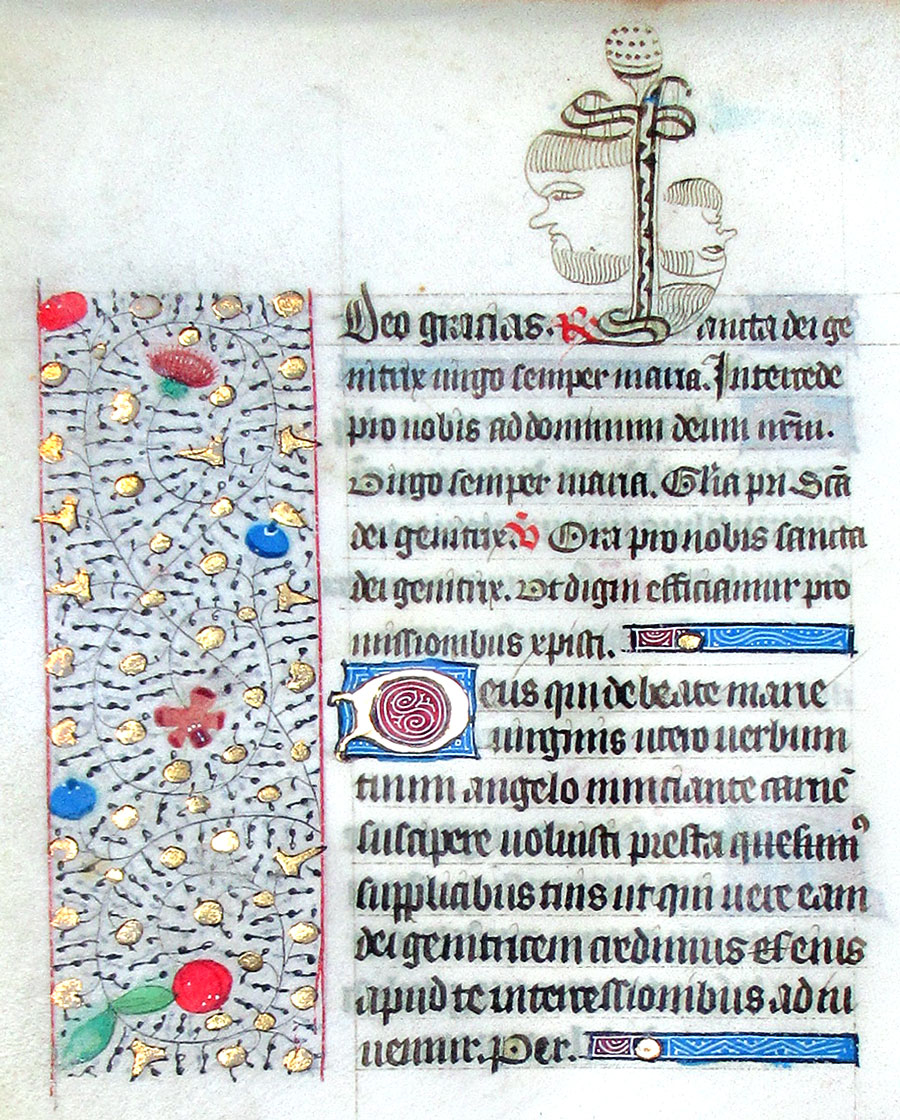 Deo gracias. R Sancta dei ge
nitrix uirgo semper maria. Intercede
pro nobis ad dominum deum nr̄m.
Virgo semper maria. Gl'ia pri Scā
dei genitrix. V̄ Ora pro nobis sancta
dei genitrix. Vt digni efficiamur pro
missionibus xp̄isti.
Deus qui de beate marie
uirginis utero uerbum
tuum angelo nunciante carnē
suscipere uoluisti presta quesumꝰ
supplicibus tuis ut qui uere eam
dei genitricem credimus et eius
apud te intercessionibus ad iu
uemur. Per.